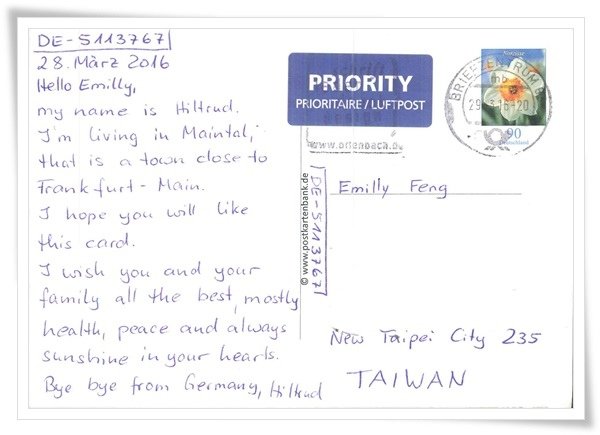 DE-5113767
28. März 2016
Hello Emilly,
my name is Hiltrud.
I'm living in Maintal,
that is a town close to
Frankfurt-Main.
I hope you will like
this card.
I wish you and your
family all the best, mostly
health, peace and always
sunshine in your hearts.
Bye bye from Germany, Hiltrud
PRIORITY
PRIORITAIRE / LUFTPOST
Narzisse
BRIEFZENTRUM
90
Deutschland
© www.postkartenbank.de
DE-5113767
Emilly Feng
New Taipei City 235
TAIWAN